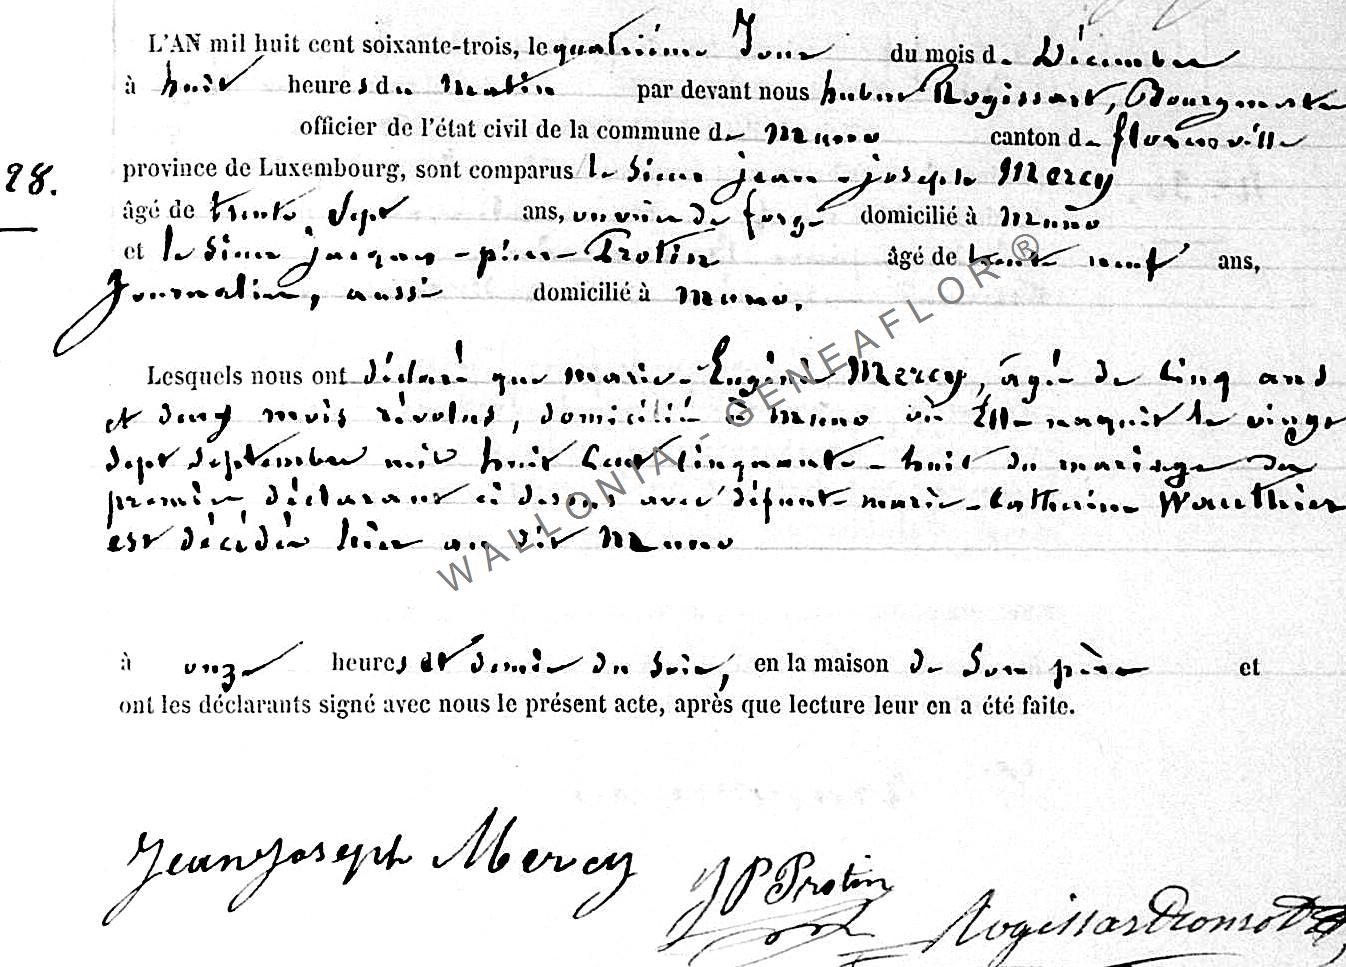 L'AN mil huit cent soixante-trois, le quatrième Jour du mois de Décembre
à huit heures du matin par devant nous hubert Rogissart, Bourgmestre
officier de l'état civil de la commune de muno canton de florenville
28.
province de Luxembourg, sont comparus le Sieur jean-joseph Mercy
âgé de trente sept ans, ouvrier de forge domicilié à muno
et le Sieur jacques-pierre Protin âgé de trente neuf ans,
Journalier, aussi domicilié à muno,
Lesquels nous ont déclaré que marie-Eugénie Mercy, âgée de Cinq ans
et deux mois révolus, domiciliée à muno où Elle naquit le vingt
sept septembre mil huit Cent Cinquante-huit du mariage du
premier déclarant ci dessus avec défunte marie-Catherine Wauthier
est décédée hier au dit Muno
à onze heures et demie du Soir, en la maison de Son père et
ont les déclarants signé avec nous le présent acte, après que lecture leur en a été faite.
Jean Joseph Mercy
JP Protin
Rogissart
WALLONIA - GENEAFLOR ®